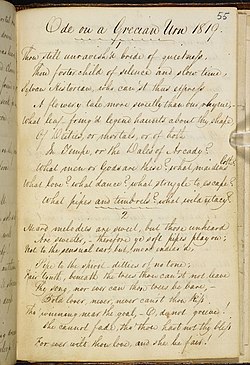 55
Ode on a Grecian Urn 1819.
1
Thou still unravish'd bride of quietness,
Thou foster child of silence and slow time,
Sylvan Historian, who can'st thus express
A flowery tale more sweetly than our rhyme:
What leaf-fring'd legend haunts about thy shape
Of Deities, or mortals, or of both,
In Tempe, or the Dales of Arcady?
What men or Gods are these? what maidens loth?
What love? what dance? what struggle to escape?
What pipes and timbrels? what wild extacy?
2
Heard melodies are sweet, but those unheard
Are sweeter, therefore ye soft pipes play on;
Not to the sensual ear, but, more endear'd,
Pipe to the spirit ditties of no tone;
Fair Youth, beneath the trees thou can'st not leave
Thy song, nor ever can those trees be bare,
Bold lover, never, never can'st thou kiss,
Tho' winning near the goal, O, do not grieve!
She cannot fade, tho' thou hast not thy bliss,
For ever wilt thou love, and she be fair.